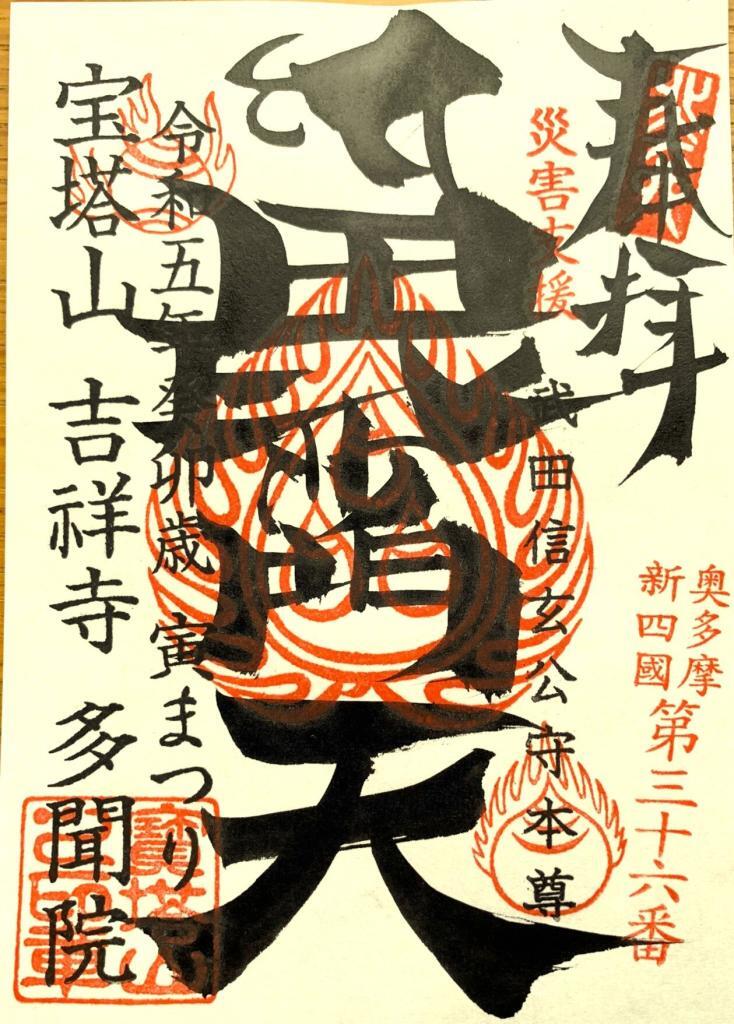 奉拝
災害支援
奥多摩
新四國
第三十六番
武田信玄公守本尊
毘沙門天
令和五年癸卯歳 寅まつり
宝塔山 吉祥寺 多聞院